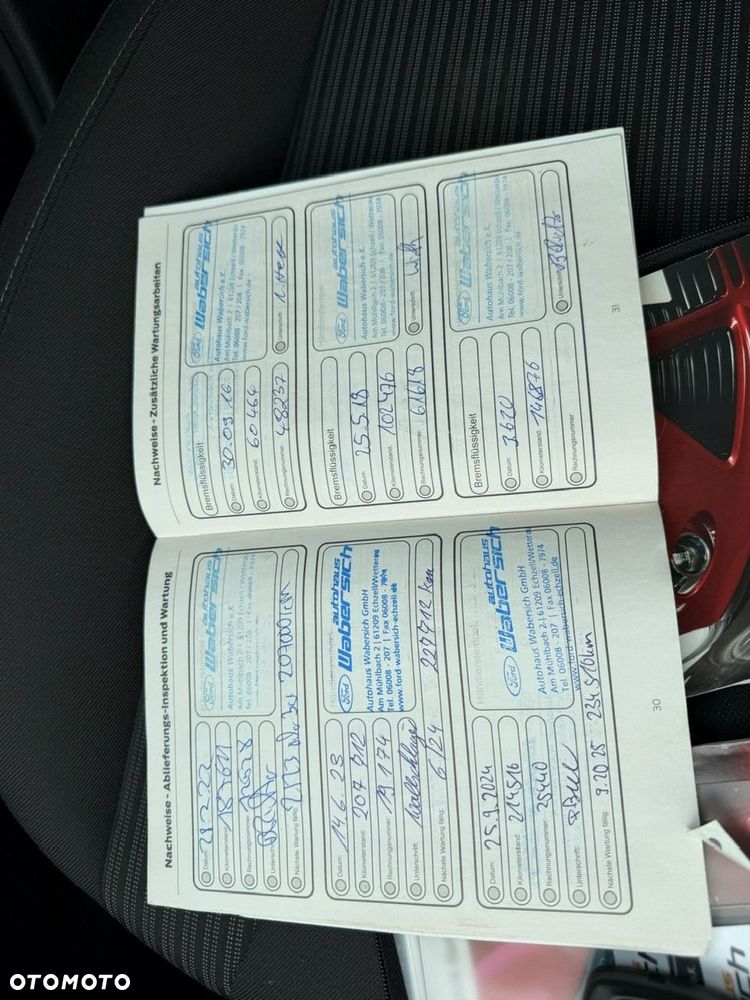 Nachweise - Ablieferungs-Inspektion und Wartung
Datum:
Kilometerstand:
Rechnungsnummer:
Unterschrift:
Nächste Wartung fällig:
207000
Ford
autohaus
Wabersich
Autohaus Wabersich e.K.
Datum: 14.6.23
Kilometerstand: 207 912
Rechnungsnummer: 19 174
Unterschrift:
Nächste Wartung fällig: 6/24
Händlerstempel
Ford
autohaus
Wabersich
Autohaus Wabersich GmbH
Am Mühlbach 2 | 61209 Echzell/Wetterau
Tel. 06008 - 207 | Fax 06008 - 7974
www.ford-wabersich-echzell.de
Datum: 25.9.2024
Kilometerstand: 214516
Rechnungsnummer: 25440
Unterschrift:
Nächste Wartung fällig: 9.2025 - 234510km
Händlerstempel
Ford
autohaus
Wabersich
Autohaus Wabersich GmbH
Am Mühlbach 2 | 61209 Echzell/Wetterau
Tel. 06008 - 207 | Fax 06008 - 7974
www.ford-wabersich-echzell.de
30
Nachweise - Zusätzliche Wartungsarbeiten
Bremsflüssigkeit
Datum: 30.09.16
Kilometerstand: 60464
Rechnungsnummer: 48237
Ford
autohaus
Wabersich
Autohaus Wabersich e.K.
Am Mühlbach 2 | 61209 Echzell/Wetterau
Tel. 06008 - 207 / 208 | Fax 06008 - 7974
www.ford-wabersich.de
Unterschrift:
Bremsflüssigkeit
Datum: 25.5.18
Kilometerstand: 102476
Rechnungsnummer: 61618
Ford
autohaus
Wabersich
Autohaus Wabersich e.K.
Am Mühlbach 2 | 61209 Echzell/Wetterau
Tel. 06008 - 207 / 208 | Fax 06008 - 7974
www.ford-wabersich.de
Unterschrift:
Bremsflüssigkeit
Datum: 3.6.20
Kilometerstand: 146876
Rechnungsnummer:
Ford
autohaus
Wabersich
Autohaus Wabersich e.K.
Am Mühlbach 2 | 61209 Echzell/Wetterau
Tel. 06008 - 207 / 208 | Fax 06008 - 7974
www.ford-wabersich.de
Unterschrift:
31
OTOMOTO